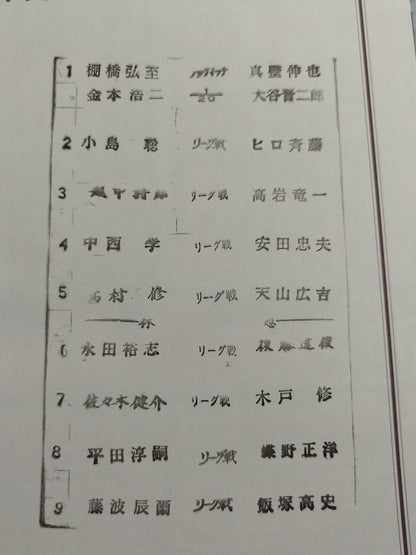 1 棚橋弘至 真壁伸也
金本浩二 1/20 大谷晋二郎
2 小島 聡 リーグ戦 ヒロ斉藤
3 越中詩郎 リーグ戦 高岩竜一
4 中西 学 リーグ戦 安田忠夫
5 西村 修 リーグ戦 天山広吉
休 憩
6 永田裕志 リーグ戦 後藤達俊
7 佐々木健介 リーグ戦 木戸 修
8 平田淳嗣 リーグ戦 蝶野正洋
9 藤波辰爾 リーグ戦 飯塚高史